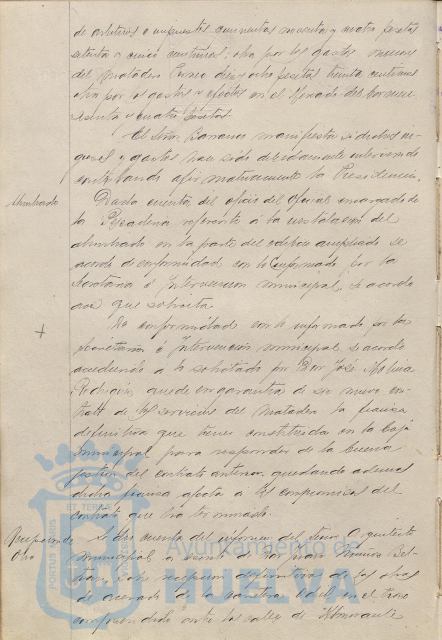 de arbitrios e impuestos cincuenta noventa y cuatro pesetas
setenta y cinco centimos, otra por los gastos menores
del Matadero Enero diez y ocho pesetas treinta centimos
otra por gastos y efectos en el Mercado del Carmen
sesenta y cuatro pesetas.
El Señor Barranco manifiesta si dichos in-
gresos y gastos han sido debidamente intervenidos
contestando afirmativamente la Presidencia.
Alumbrado
Dada cuenta del oficio del Oficial encargado de
la Pescaderia referente á la instalacion del
alumbrado en la parte del edificio ampliado se
acordo de conformidad con lo informado por la
Secretaria é Intervencion municipal, se acorde
que solicita.
De conformidad con lo informado por las
Secretaria é Intervencion municipal se acordo
accediendo a lo solicitado por Don José Molina
Rodriguez, quede en garantia de su nuevo con-
trato de los servicios del Matadero la fianza
definitiva que tiene constituida en la Caja
municipal para responder de la buena
gestion del contrato anterior quedando ademas
dicha fianza afecta a los compromisos del
contrato que ha terminado.
Recepcion de
Obra
Se dió cuenta del informe del Señor Arquitecto
Municipal
sobre recepcion definitiva de las obras
de acerado de la carretera Odiel en el trozo
comprendido entre las calles de Almirante
PORTUS MARIS
ET TERRAE
Ayuntamiento de
HUELVA